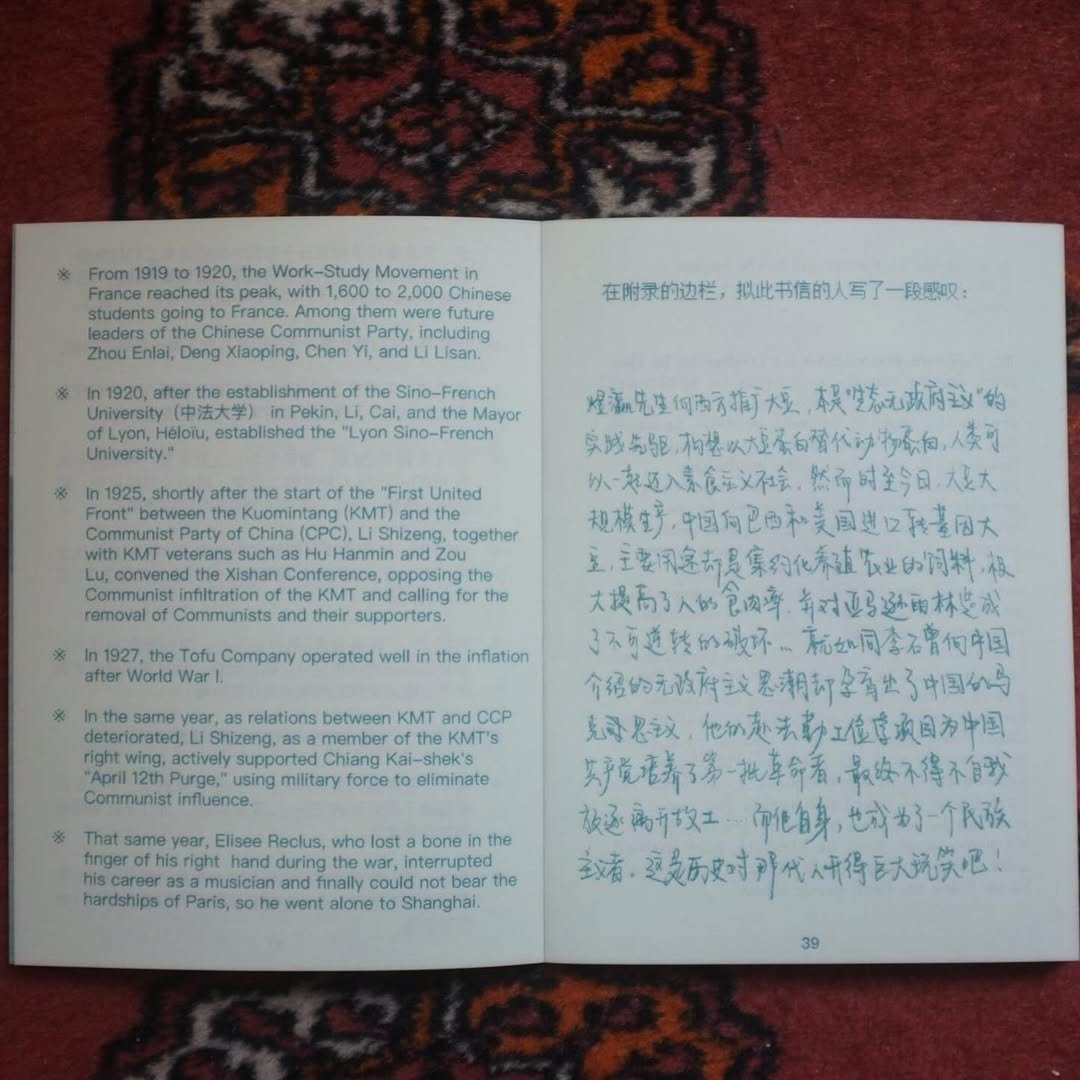 ※ From 1919 to 1920, the Work-Study Movement in
France reached its peak, with 1,600 to 2,000 Chinese
students going to France. Among them were future
leaders of the Chinese Communist Party, including
Zhou Enlai, Deng Xiaoping, Chen Yi, and Li Lisan.
※ In 1920, after the establishment of the Sino-French
University (中法大学) in Pekin, Li, Cai, and the Mayor
of Lyon, Héloïu, established the "Lyon Sino-French
University."
※ In 1925, shortly after the start of the "First United
Front" between the Kuomintang (KMT) and the
Communist Party of China (CPC), Li Shizeng, together
with KMT veterans such as Hu Hanmin and Zou
Lu, convened the Xishan Conference, opposing the
Communist infiltration of the KMT and calling for the
removal of Communists and their supporters.
※ In 1927, the Tofu Company operated well in the inflation
after World War I.
※ In the same year, as relations between KMT and CCP
deteriorated, Li Shizeng, as a member of the KMT's
right wing, actively supported Chiang Kai-shek's
"April 12th Purge," using military force to eliminate
Communist influence.
※ That same year, Elisee Reclus, who lost a bone in the
finger of his right hand during the war, interrupted
his career as a musician and finally could not bear the
hardships of Paris, so he went alone to Shanghai.
在附录的边栏，拟此书信的人写了一段感叹：
煜瀛先生向西方推广大豆，本是“生态无政府主义”的
实践先驱，构想以大豆蛋白替代动物蛋白，人类可
以一起迈入素食主义社会。然而时至今日，大豆大
规模生产，中国向巴西和美国进口转基因大
豆，主要用途却是集约化养殖农业的饲料，被
大提高了人的食肉率，并对亚马逊雨林造成
了不可逆转的破坏… 就如同李石曾向中国
介绍的无政府主义思潮却孕育出了中国的马
克思主义，他的赴法勤工俭学项目为中国
共产党培养了第一批革命者，最终不得不自我
放逐离开故土……而他自身，也成为了一个民族
主义者。这是历史对那代人开得巨大玩笑吧！
39